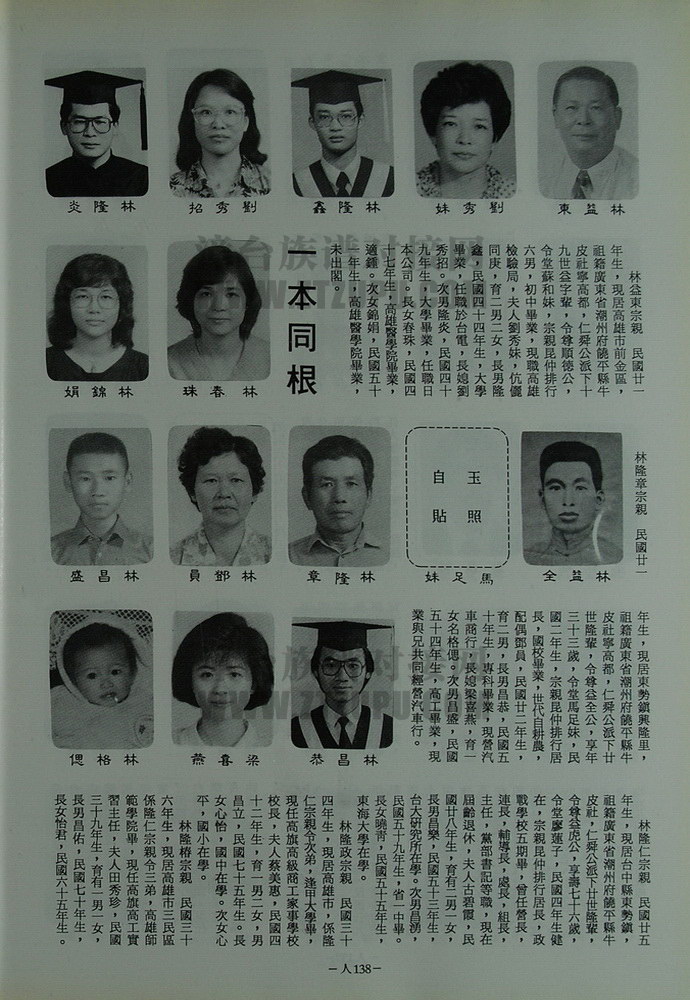 炎隆林
招秀劉
鑫隆林
妹秀劉
東益林
林益東宗親　民國廿一
年生，現居高雄市前金區，
祖籍廣東省潮州府饒平縣牛
皮社寧高都，仁舜公派下十
九世益字輩，令尊順德公，
令堂蘇和妹，宗親昆仲排行
六男，初中畢業，現職高雄
檢驗局，夫人劉秀妹，伉儷
同庚，育二男二女，長男隆
鑫，民國四十四年生，大學
畢業，任職於台電，長媳劉
秀招。次男隆炎，民國四十
九年生，大學畢業，任職日
本公司。長女春珠，民國四
十七年生，高雄醫學院畢業，
適鍾。次女錦娟，民國五十
一年生，高雄醫學院畢業，
未出閣。
一本同根
娟錦林
珠春林
林隆章宗親　民國廿一
玉照
自貼
盛昌林
員鄧林
章隆林
妹足馬
全益林
年生，現居東勢鎮興隆里，
祖籍廣東省潮州府饒平縣牛
皮社寧高都，仁舜公派下廿
世隆輩，令尊益全公，享年
三十三歲，令堂馬足妹，民
國二年生，宗親昆仲排行居
長，國校畢業，世代自耕農，
配偶鄧員，民國廿二年生，
育二男，長男昌恭，民國五
十年生，專科畢業，現營汽
車商行，長媳梁喜燕，育一
女名格偲。次男昌盛，民國
五十四年生，高工畢業，現
業與兄共同經營汽車行。
偲格林
燕喜梁
恭昌林
林隆仁宗親　民國廿五
年生，現居台中縣東勢鎮，
祖籍廣東省潮州府饒平縣牛
皮社，仁舜公派下廿世隆輩，
令尊益虎公，享壽七十六歲，
令堂廖蓮子，民國四年生健
在，宗親昆仲排行居長，政
戰學校五期畢，曾任營長，
連長，輔導長，處長，組長，
主任，黨部書記等職，現在
屆齡退休，夫人古碧霞，民
國廿八年生，育有二男一女，
長男昌樂，民國五十三年生，
台大研究所在學。次男昌湧，
民國五十九年生，省一中畢。
長女曉菁，民國五十五年生，
東海大學在學。
林隆政宗親　民國三十
四年生，現居高雄市，係隆
仁宗親令次弟，逢甲大學畢，
現任高旗高級商工家事學校
校長，夫人蔡美惠，民國四
十二年生，育一男二女，男
昌立，民國七十五年生。長
女心怡，國中在學。次女心
平，國小在學。
林隆椿宗親　民國三十
六年生，現居高雄市三民區
係隆仁宗親令三弟，高雄師
範學院畢，現任高旗高工實
習主任，夫人田秀珍，民國
三十九年生，育有二男一女，
長男昌佑，民國七十年生，
長女怡君，民國六十五年生。
－人138－